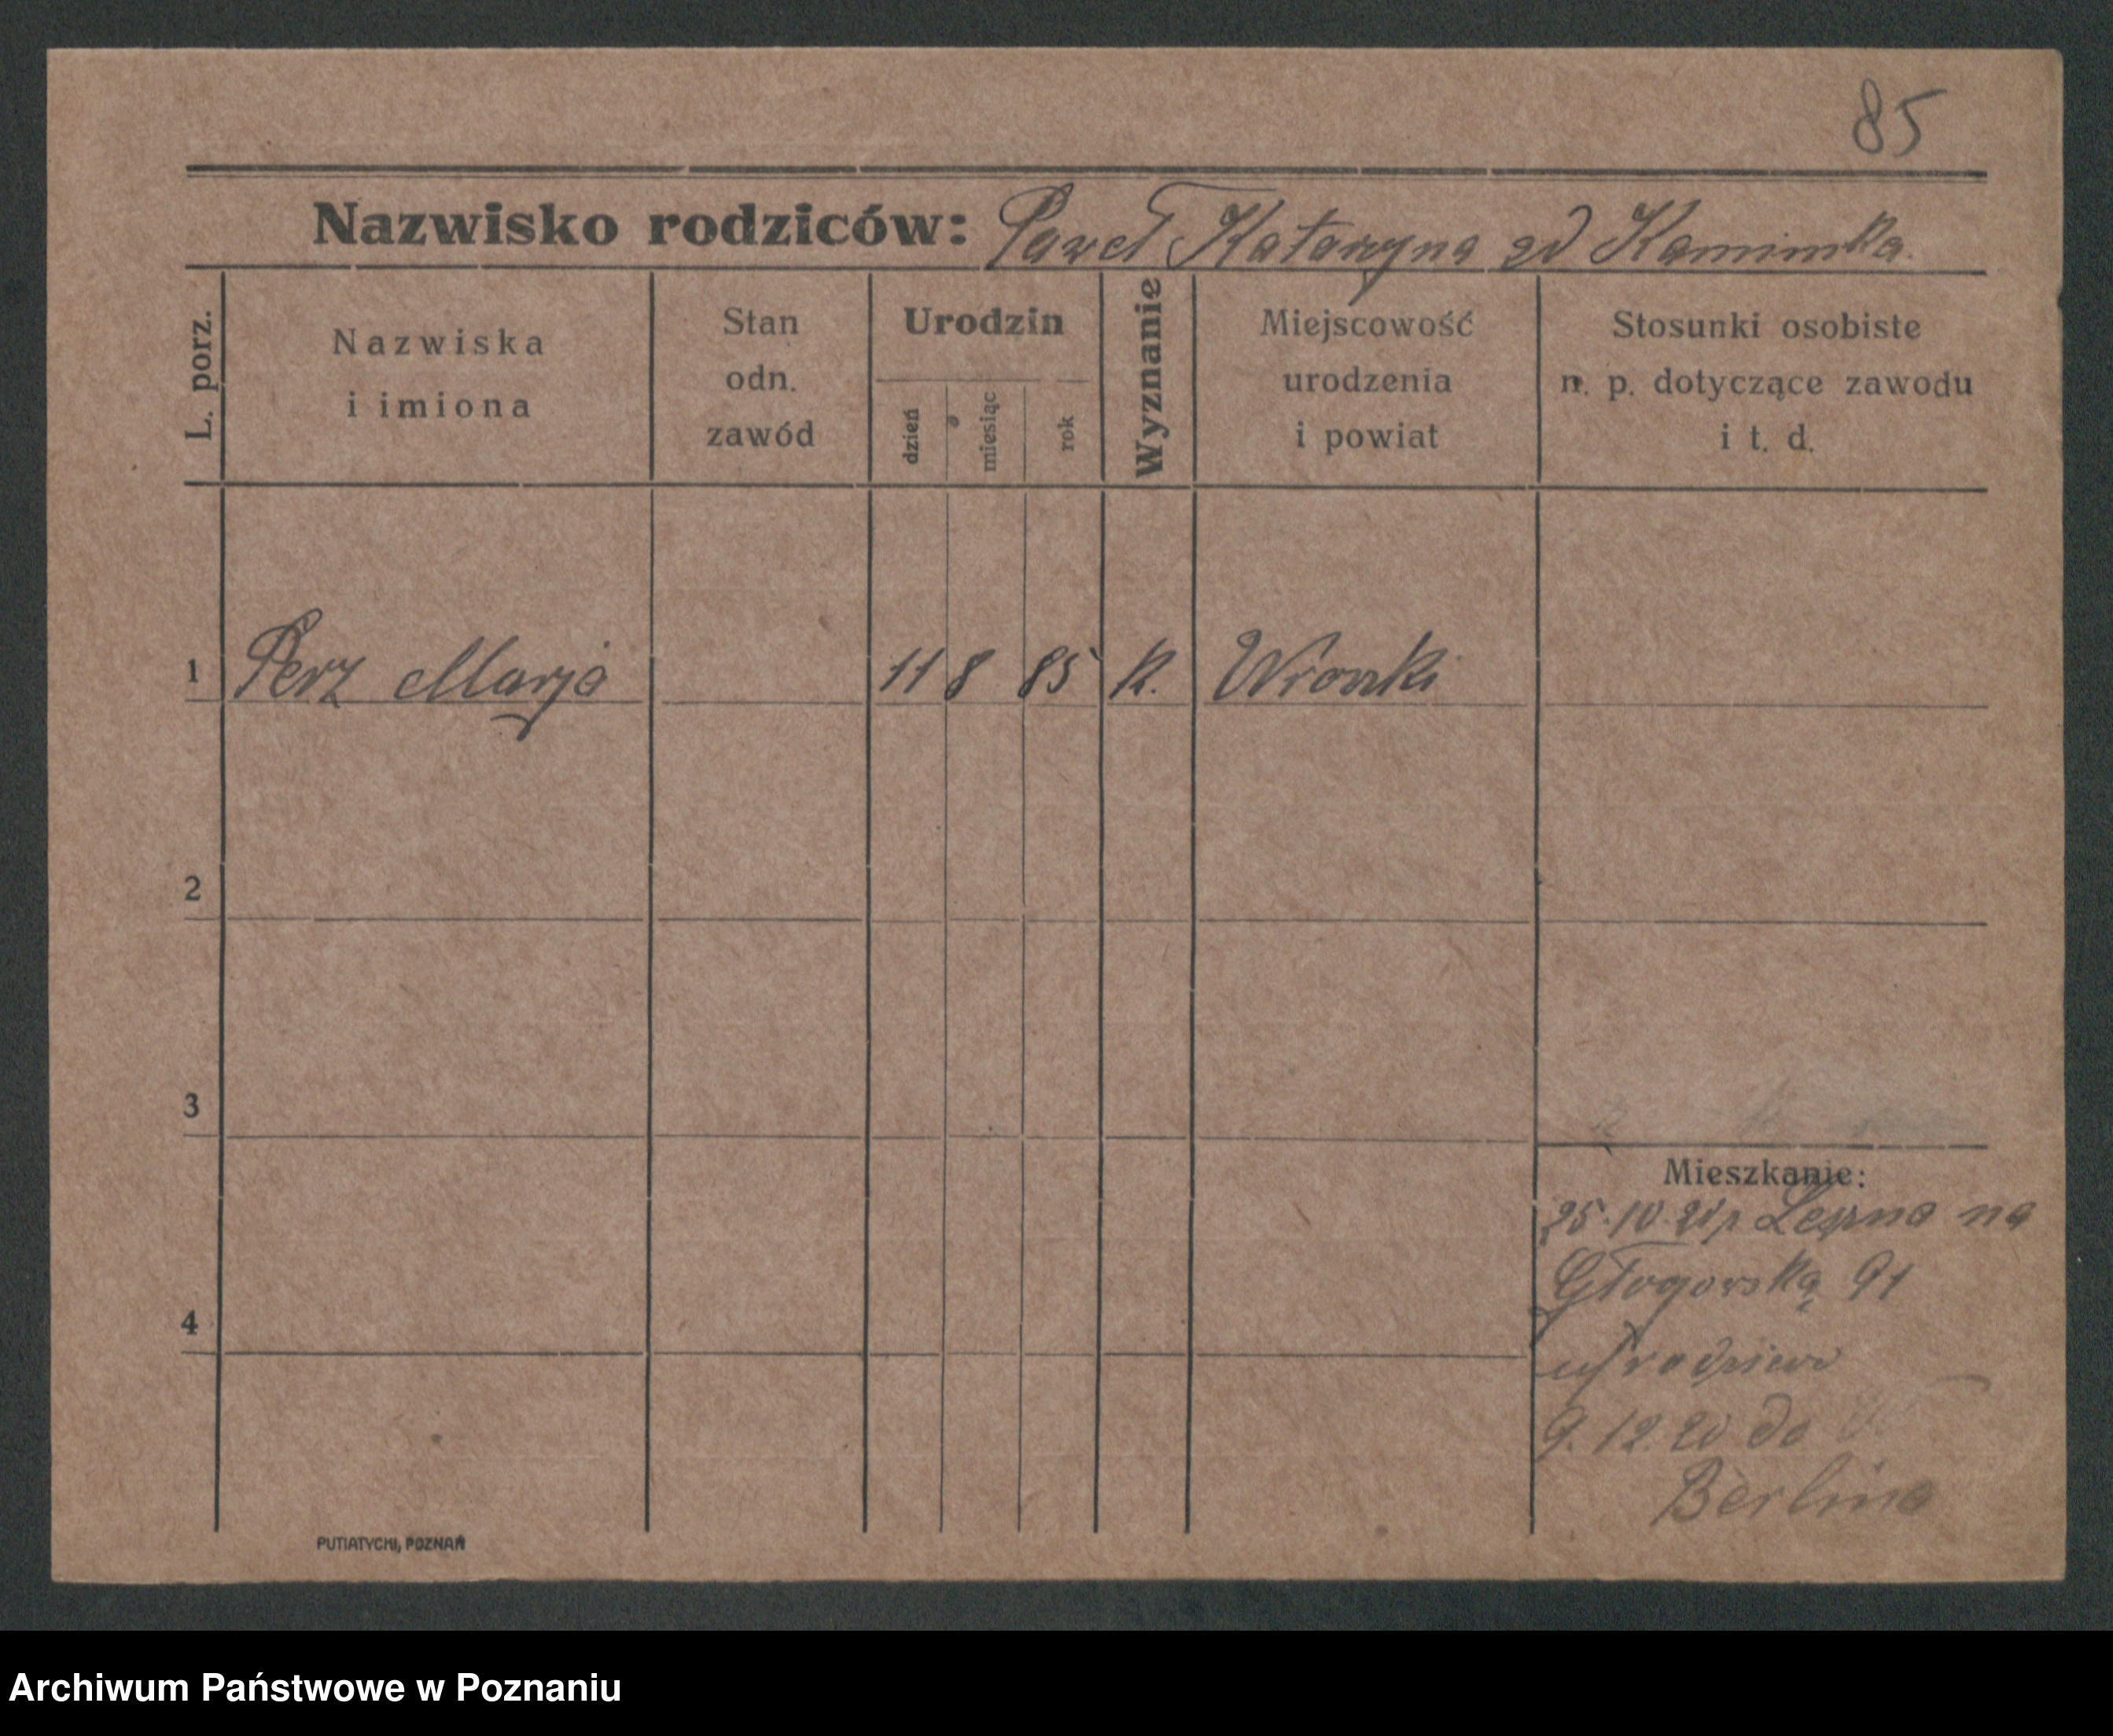 85
Nazwisko rodziców: Paweł Katarzyna zd Kaminska.
L. porz.
Nazwiska i imiona
Stan odn. zawód
Urodzin
dzień
miesiąc
rok
Wyznanie
Miejscowość urodzenia i powiat
Stosunki osobiste n. p. dotyczące zawodu i t. d.
1 Perz Marja 11 8 85 K. Wronki
2
3
4
Mieszkanie:
25.10.20 Leszna na
Głogorską 91
9.12.20 do
Berlina
PUTIATYCKI, POZNAŃ
Archiwum Państwowe w Poznaniu